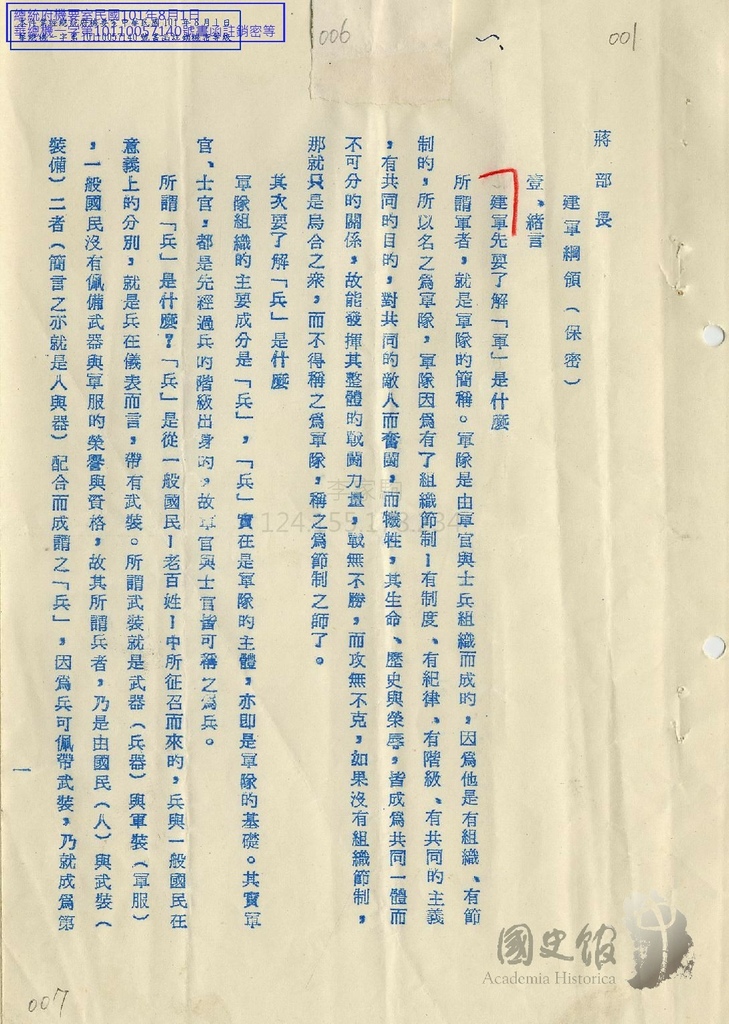 總統府機要室民國101年8月1日
華總機一字第10110057140號書函註銷密等
006
001
蔣部長
建軍綱領（保密）
壹、緒言
建軍先要了解「軍」是什麼
所謂軍者，就是軍隊的簡稱。軍隊是由軍官與士兵組織而成的，因爲他是有組織、有節
制的，所以名之爲軍隊，軍隊因爲有了組織節制－有制度、有紀律、有階級、有共同的主義
，有共同的目的，對共同的敵人而奮鬪，而犧牲，其生命、歷史與榮辱，皆成爲共同一體而
不可分的關係，故能發揮其整體的戰鬪力量，戰無不勝，而攻無不克，如果沒有組織節制，
那就只是烏合之衆，而不得稱之爲軍隊，稱之爲節制之師了。
其次要了解「兵」是什麼
軍隊組織的主要成分是「兵」，「兵」實在是軍隊的主體，亦即是軍隊的基礎。其實軍
官、士官，都是先經過兵的階級出身的，故軍官與士官皆可稱之爲兵。
所謂「兵」是什麼？「兵」是從一般國民－老百姓－中所征召而來的，兵與一般國民在
意義上的分別，就是兵在儀表而言，帶有武裝。所謂武裝就是武器（兵器）與軍裝（軍服）
，一般國民沒有佩備武器與軍服的榮譽與資格，故其所謂兵者，乃是由國民（人）與武裝（
裝備）二者（簡言之亦就是人與器）配合而成謂之「兵」，因爲兵可佩帶武裝，乃就成爲第
一
007
國史館
Academia Historica